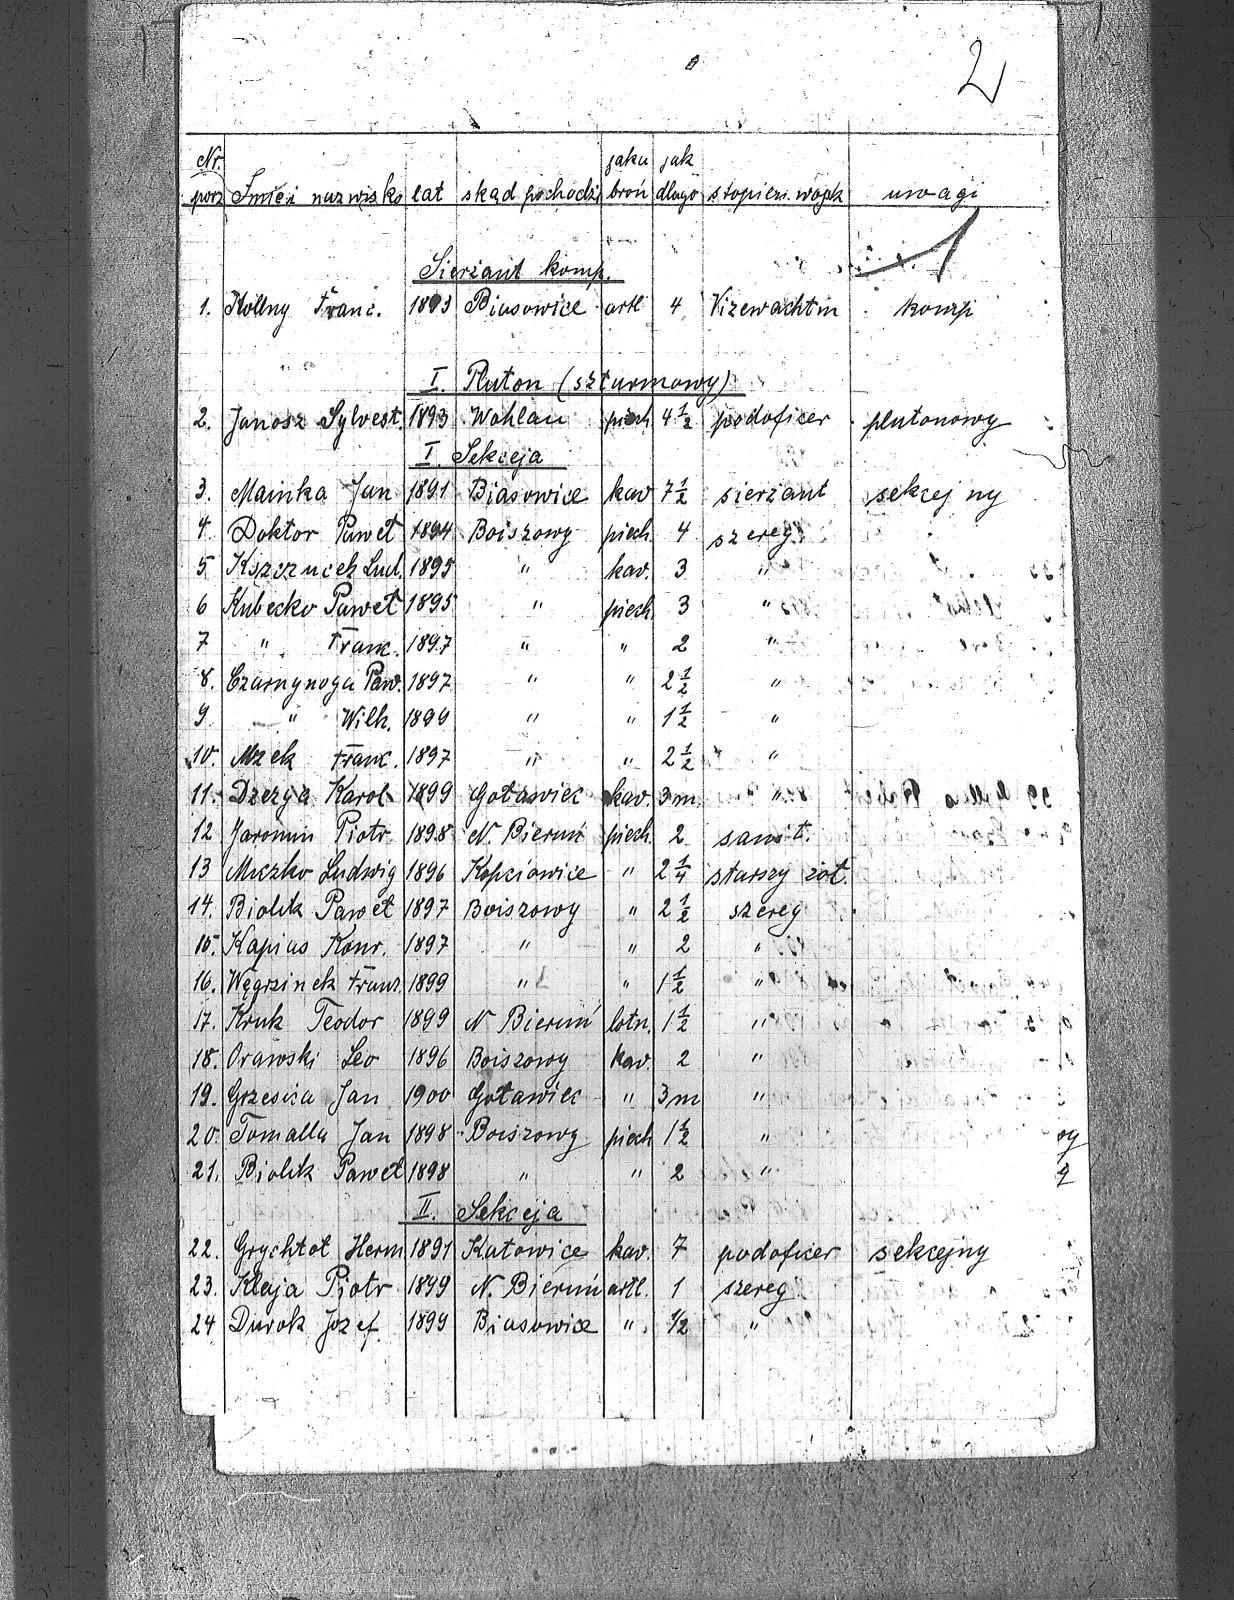 2
Nr. porz | Imię i nazwisko | lat | skąd pochodzi | jaka broń | jak długo | stopień wojsk | uwagi
Sierżant komp.
1. Kolany Franc. 1893 Biasowice artl 4 Vizewachtm komp
I. Pluton (szturmowy)
2. Janosz Sylvest. 1893 Wohlau piech 4 1/2 podoficer plutonowy
I. Sekceja
3. Mainka Jan 1891 Biasowice kav 7 1/2 sierżant sekcejny
4. Doktor Paweł 1894 Boiszowy piech 4 szereg.
5 Kszczuch Lud. 1895 " kav. 3 "
6 Kubecko Paweł 1895 " piech 3 "
7 " Franc. 1897 " " 2 "
8. Czarnynoga Paw. 1897 " " 2 1/2 "
9 " Wilh. 1899 " " 1 1/2 "
10. Mzek Franc. 1897 " " 2 1/2 "
11. Dzezga Karol 1899 Goławiec kav. 3 m "
12 Jaromin Piotr 1898 N. Bieruń piech. 2 sanit.
13 Miczko Ludwig 1896 Kopciowice " 2 1/4 starszy żoł.
14. Biolik Paweł 1897 Boiszowy " 2 1/2 szereg
15. Kapias Konr. 1897 " " 2 "
16. Węgrzinek Franz. 1899 " " 1 1/2 "
17. Kruk Teodor 1899 N Bieruń lotn. 1 1/2 "
18. Orawski Leo 1896 Boiszowy kav. 2 "
19. Grzesica Jan 1900 Goławiec " 3 m "
20. Tomalla Jan 1898 Boiszowy piech 1 1/2 "
21. Biolik Paweł 1898 " " 2 "
II. Sekceja
22. Grychtoł Herm 1891 Katowice kav. 7 podoficer sekcejny
23. Klaja Piotr 1899 N. Bieruń artl. 1 szereg
24 Durok Jozef. 1899 Biasowice " 1/2 "